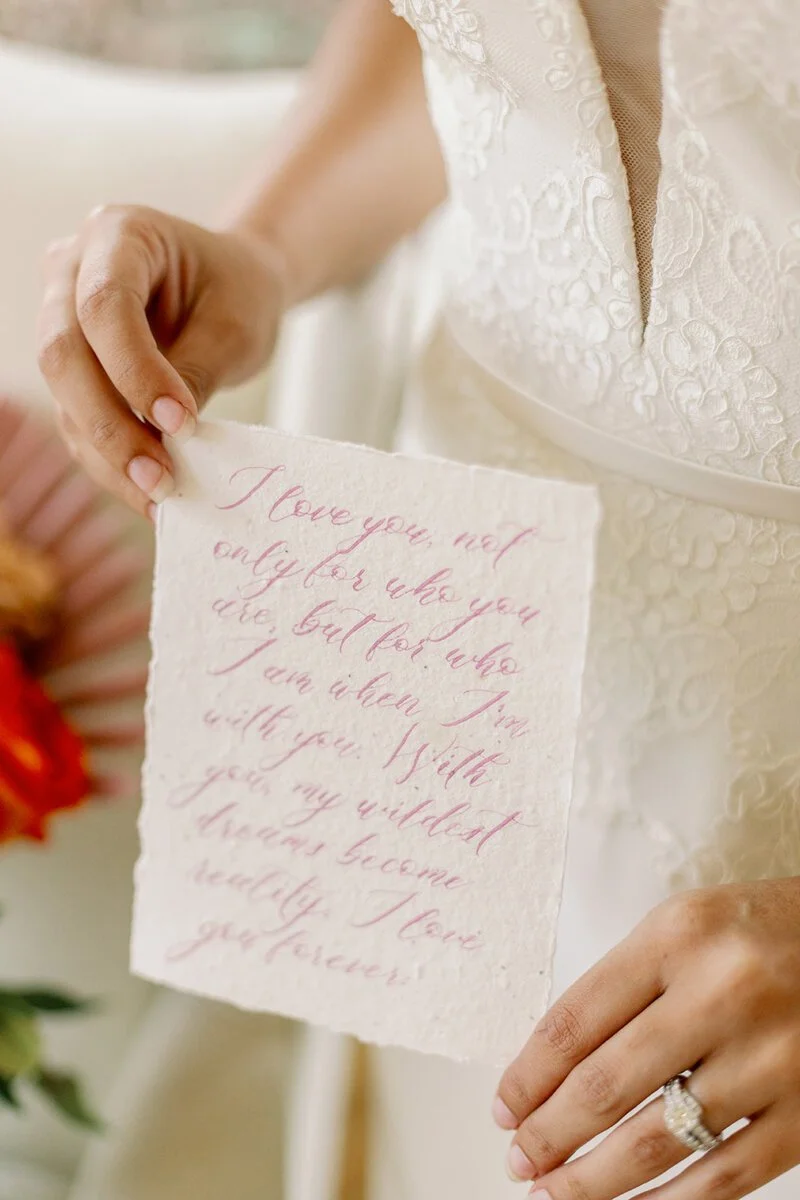 I love you, not
only for who you
are, but for who
I am when I'm
with you. With
you, my wildest
dreams become
reality. I love
you forever.